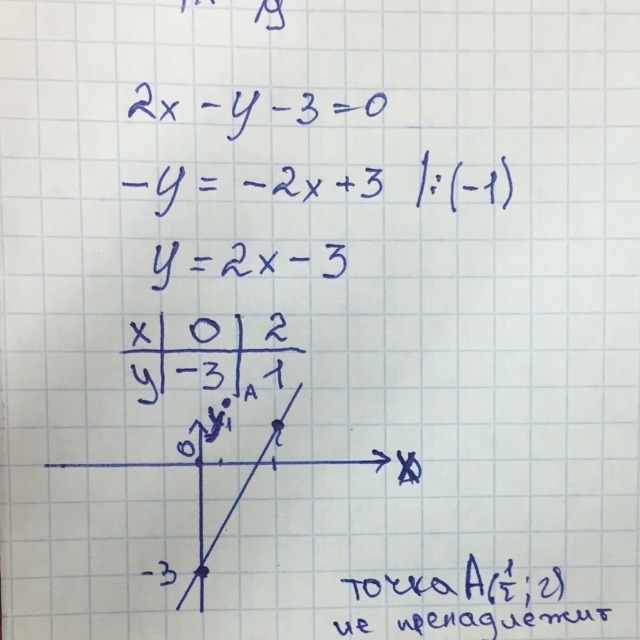 2x - y - 3 = 0
-y = -2x + 3 |:(-1)
y = 2x - 3
x | 0 | 2
y | -3 | 1
A
y 1
0
2
x
-3
точка A(1/2; 2)
не пренадлежит